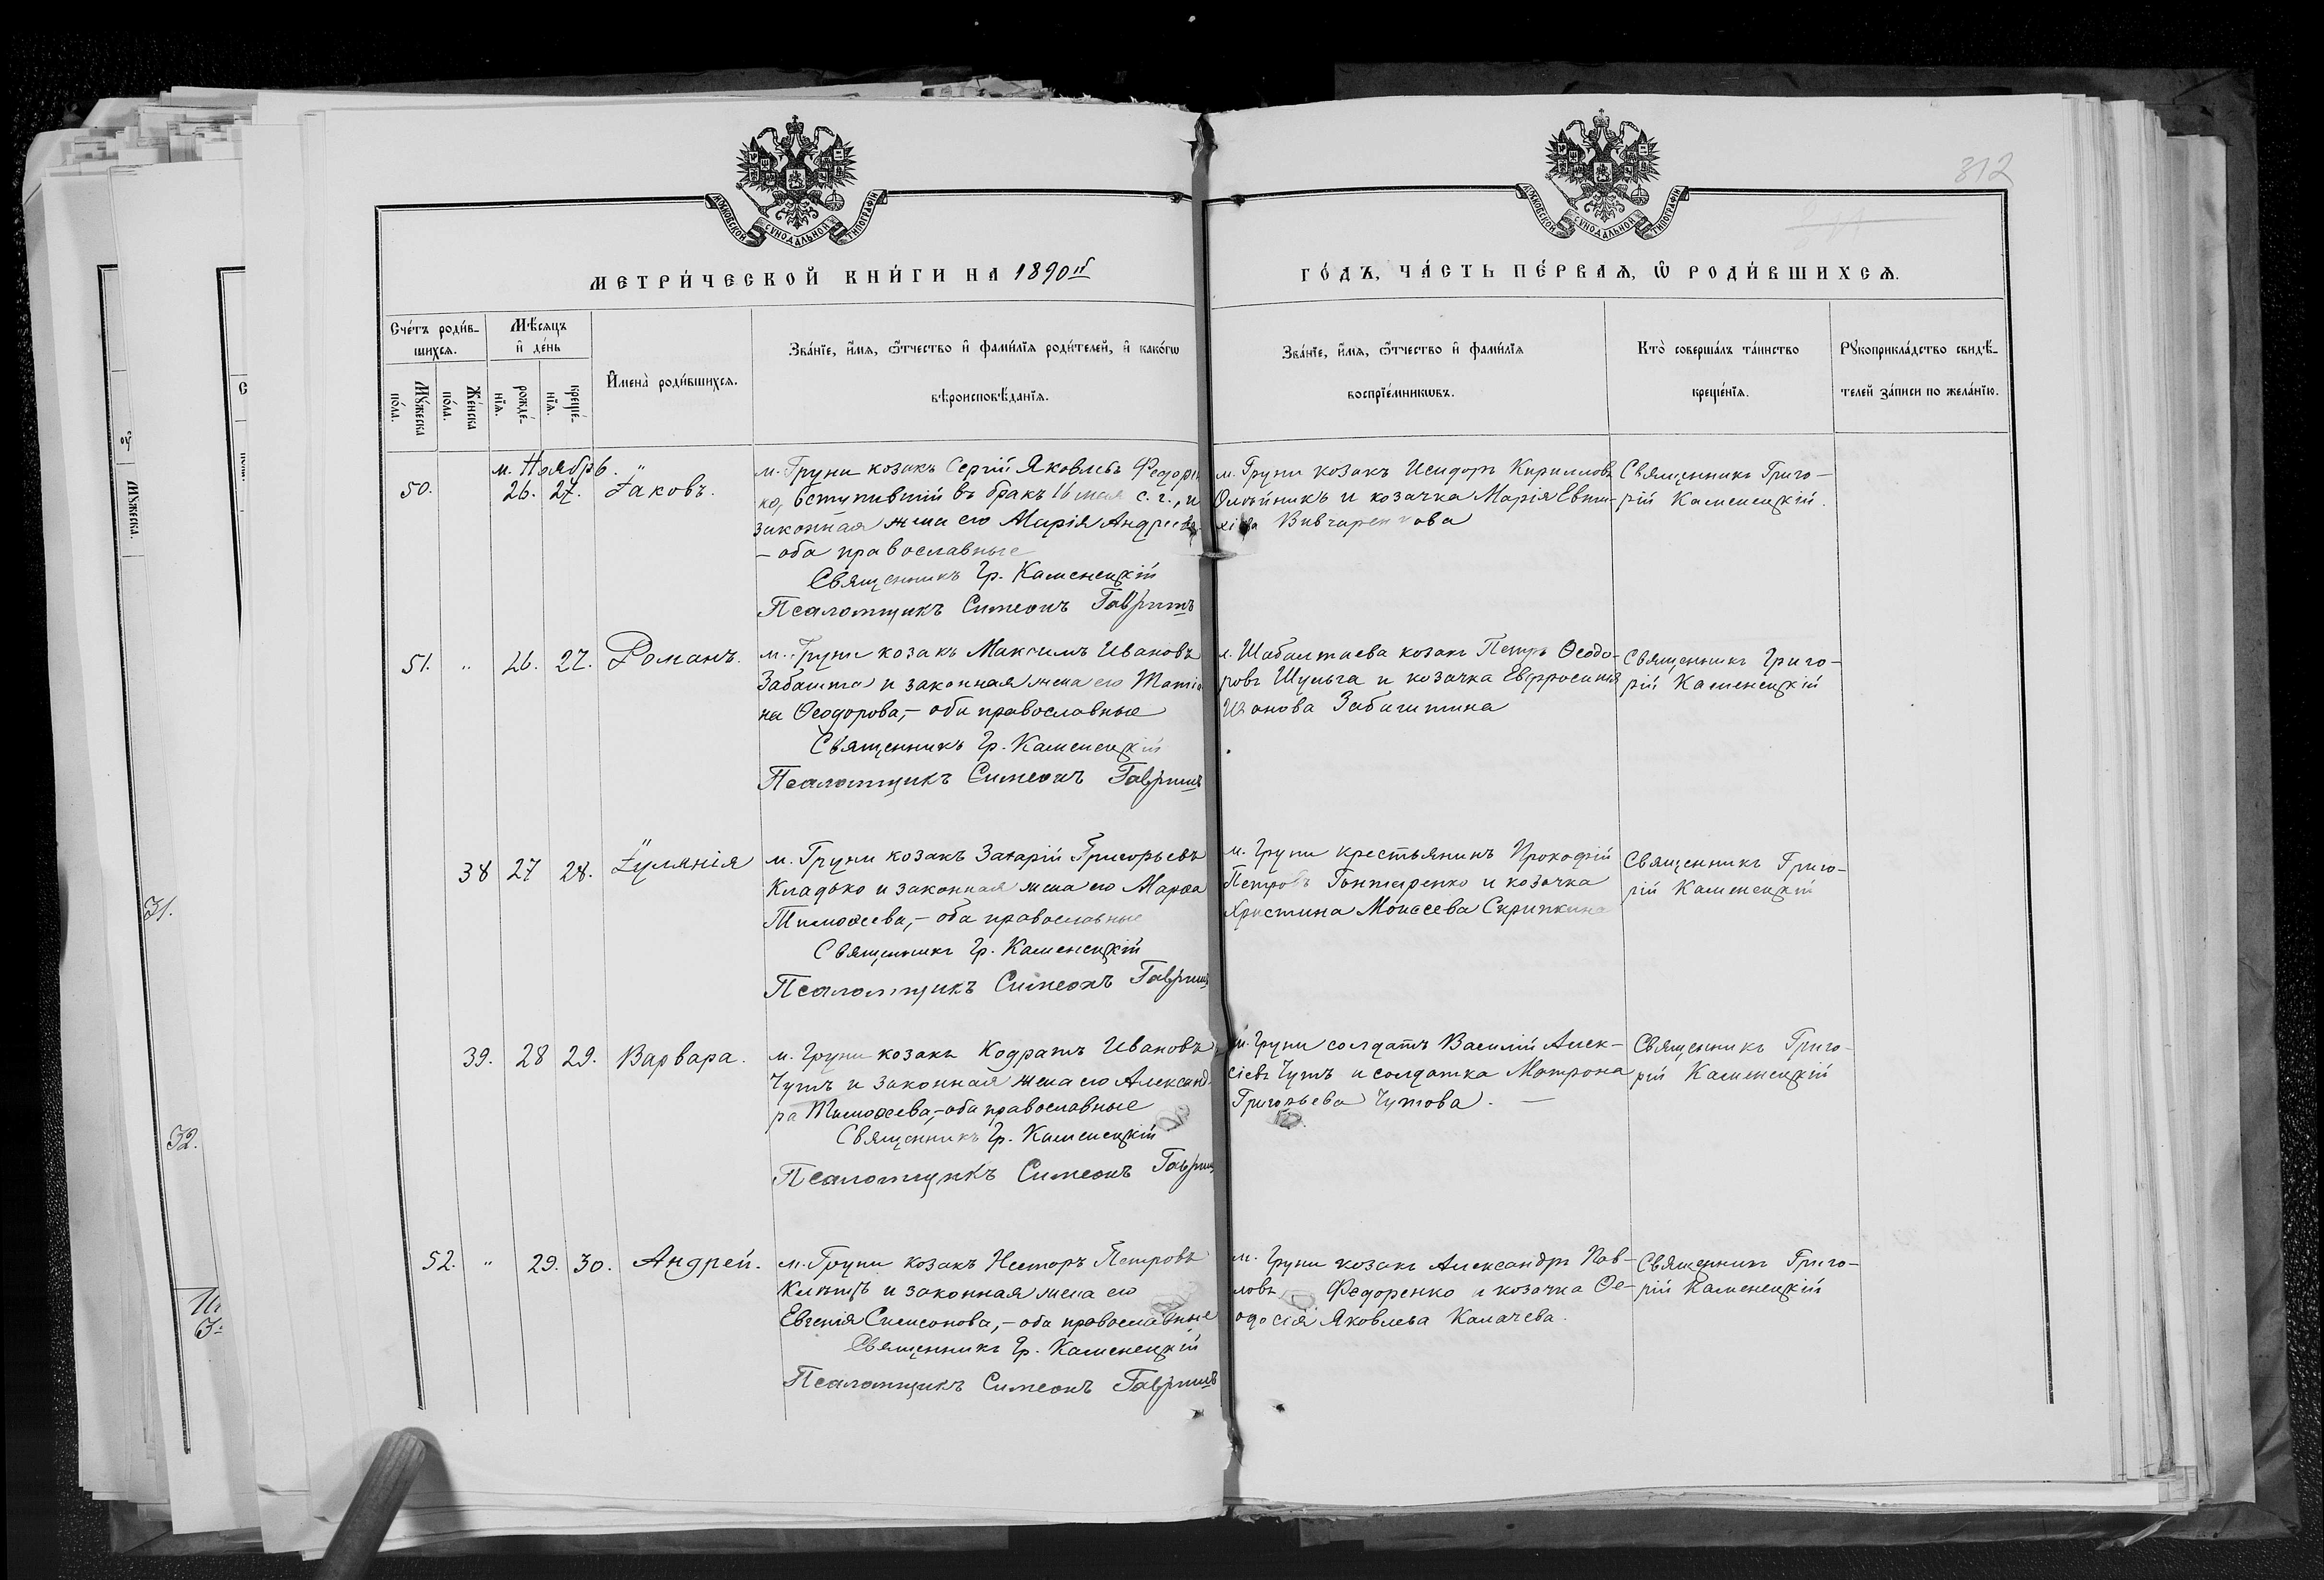 312
МОСКОВСКОЙ СУНОДАЛЬНОЙ ТИПОГРАФІИ
МОСКОВСКОЙ СУНОДАЛЬНОЙ ТИПОГРАФІИ
МЕТРИ́ЧЕСКОЙ КНИ́ГИ НА 1890й
ГО́ДЪ, ЧА́СТЬ ПЕ́РВАЯ, Ѡ РОДИ́ВШИХСЯ.
Сче́тъ роди́в-
шихся.
Мѣ́сяцъ
и҆ де́нь
Му́жеска
по́ла.
Же́нска
по́ла.
рожде́-
нїя.
креще́-
нїя.
И҆мена̀ роди́вшихся.
Зва́нїе, и҆́мя, ѻ҆́тчество и҆ фами́лїя роди́телей, и҆ како́гѡ
вѣроисповѣ́данїя.
Зва́нїе, и҆́мя, ѻ҆́тчество и҆ фами́лїя
воспрїе́мникѡвъ.
Кто̀ соверша́лъ та́инство
креще́нїя.
Рꙋкоприкла́дство свидѣ́-
телей за́писи по жела́нїю.
м. Ноябрь.
50. " 26. 27. Іаковъ.
м. Груни козакъ Сергій Яковлевъ Федорен
ко, вступившій въ бракъ 16 мая с. г., и
законная жена его Марія Андреева
– оба православные
Священникъ Гр. Каменецкій
Псаломщикъ Симеонъ Гавришъ
м. Груни козакъ Исидоръ Кирилловъ
Олейникъ и козачка Марія Евти-
хіева Вивчаренкова
Священникъ Григо-
рій Каменецкій.
51. " 26. 27. Романъ.
м. Груни козакъ Максимъ Ивановъ
Забашта и законная жена его Татіа
на Ѳеодорова,– оба православные
Священникъ Гр. Каменецкій
Псаломщикъ Симеонъ Гавришъ
Петръ Ѳеодо-
ровъ Шульга и козачка Евфросинія
Иванова Забаштина
Священникъ Григо-
рій Каменецкій
38 27 28. Іуліанія
м. Груни козакъ Захарій Григорьевъ
Кладько и законная жена его Марѳа
Тимоѳеева,– оба православные
Священникъ Гр. Каменецкій
Псаломщикъ Симеонъ Гавришъ
м. Груни крестьянинъ Прокофій
Петровъ Гонтаренко и козачка
Христина Моисеева Скрипкина
Священникъ Григо-
рій Каменецкій
39. 28 29. Варвара.
м. Груни козакъ Кодратъ Ивановъ
Чутъ и законная жена его Александ-
ра Тимоѳеева,– оба православные
Священникъ Гр. Каменецкій
Псаломщикъ Симеонъ Гавришъ
м. Груни солдатъ Василій Алек-
сіевъ Чутъ и солдатка Матрона
Григорьева Чутова. –
Священникъ Григо-
рій Каменецкій
52. " 29. 30. Андрей.
м. Груни козакъ Несторъ Петровъ
и законная жена его
Евгенія Симеонова,– оба православные
Священникъ Гр. Каменецкій
Псаломщикъ Симеонъ Гавришъ
м. Груни козакъ Александръ Пав-
ловъ Федоренко и козачка Ѳе-
одосія Яковлева Калачева.
Священникъ Григо-
рій Каменецкій
Му́жеска.
31.
32.